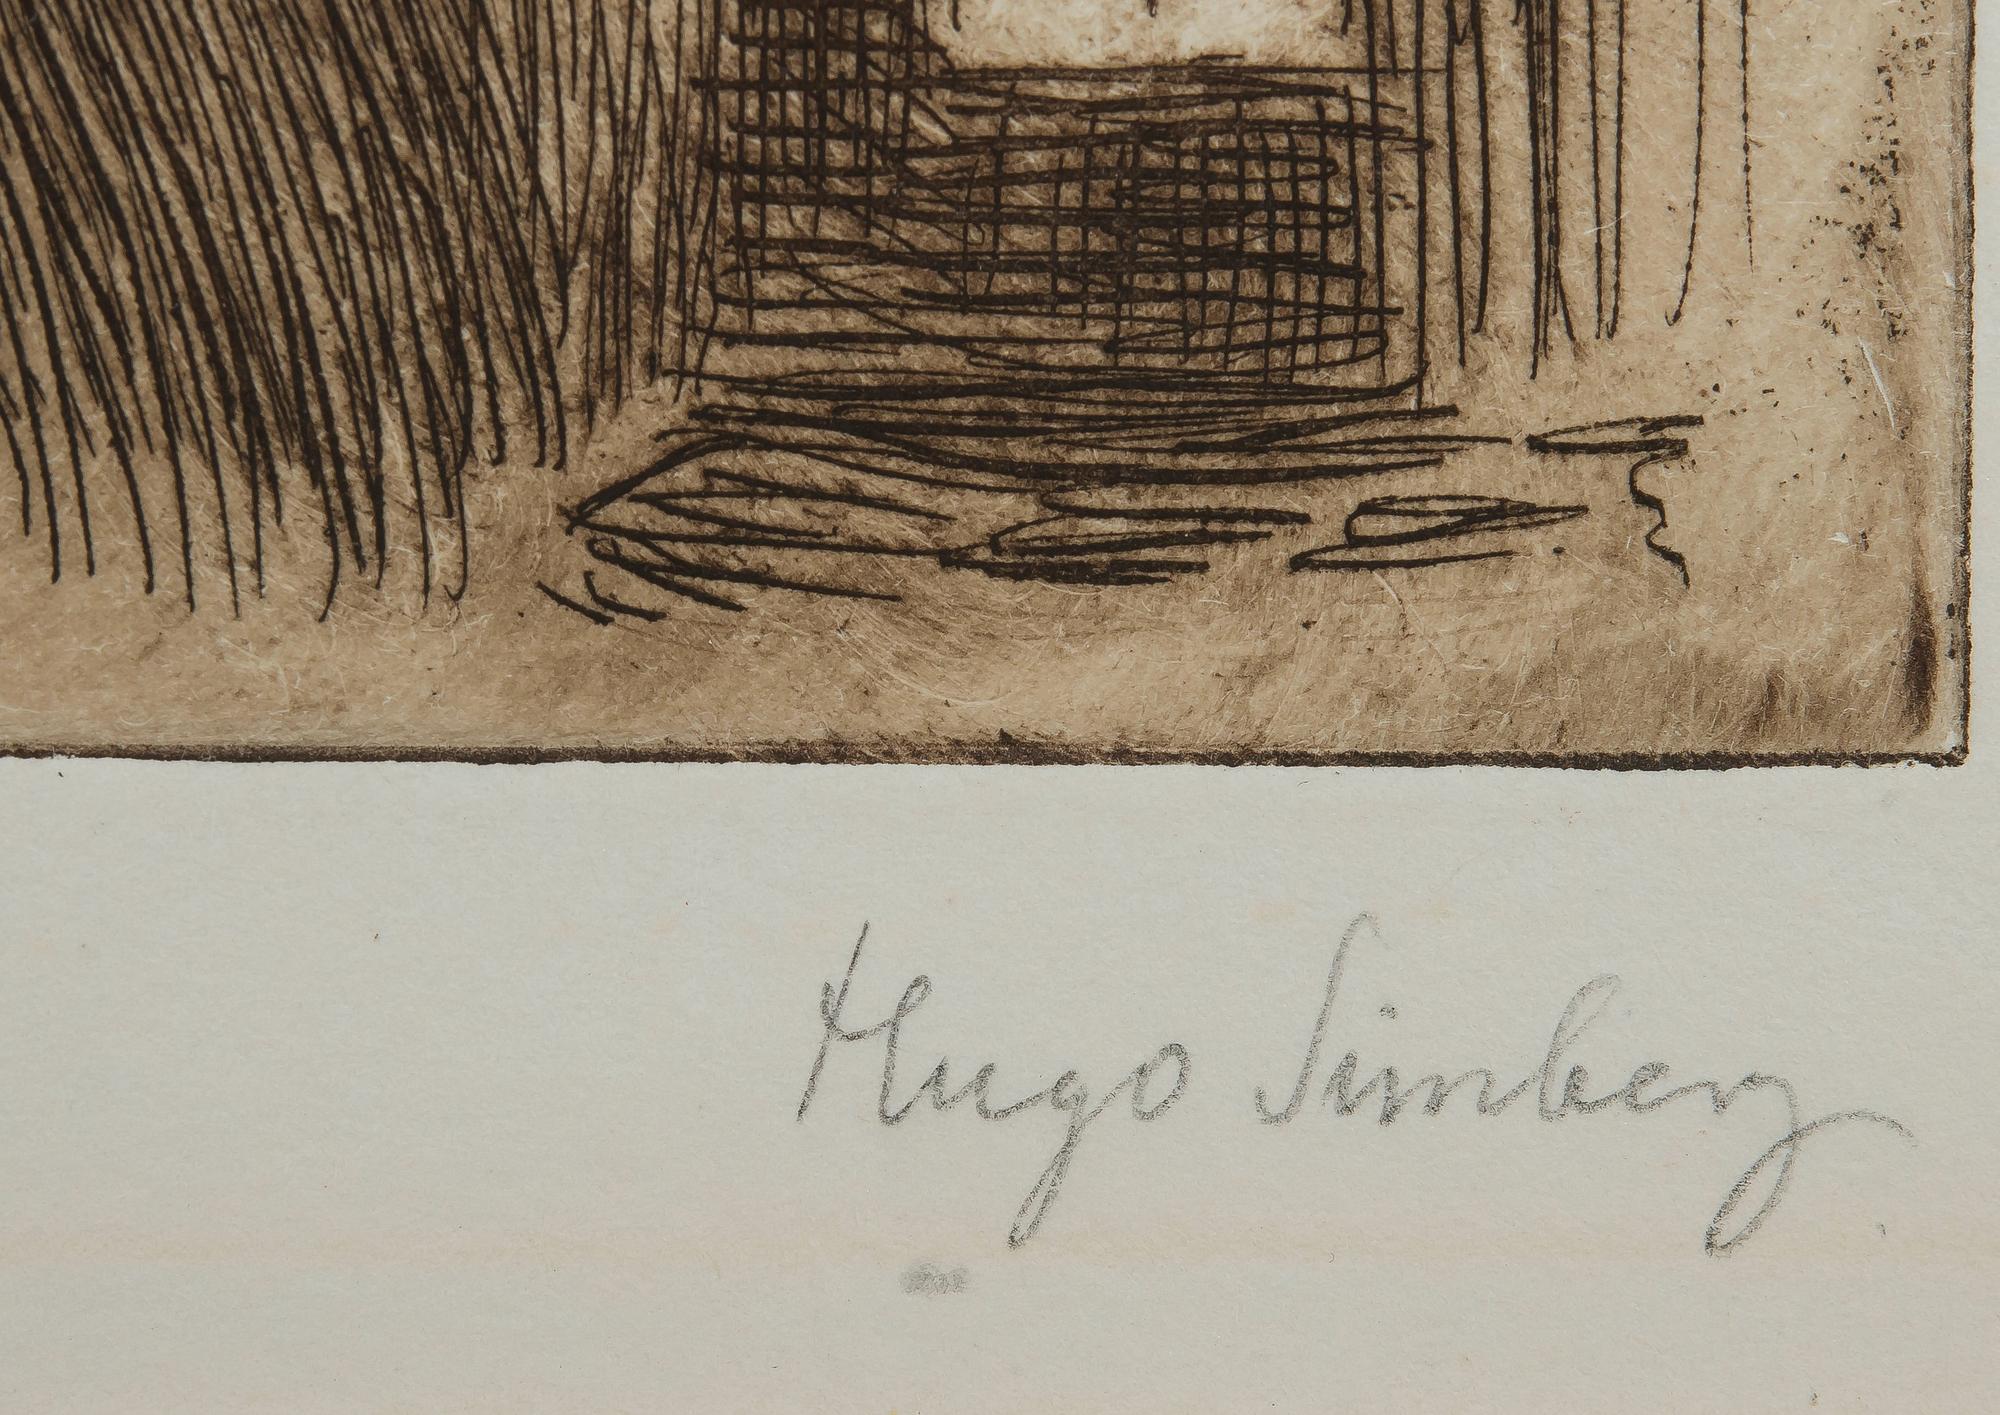 Hugo Simberg